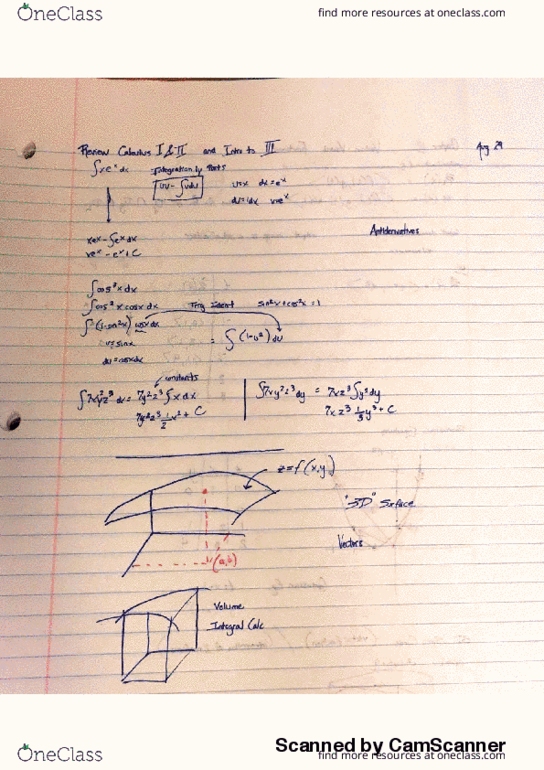 OneClass find more resources at oneclass.com
Review Calculus I & II and Intro to III Aug 29
∫xeˣdx Integration by Parts
uv - ∫vdu u=x dv=eˣ
du=1dx v=eˣ
xeˣ - ∫eˣdx
xeˣ - eˣ + C
Antiderivatives
∫cos³xdx
∫cos²x cosxdx Trig Ident sin²x+cos²x=1
∫(1-sin²x) cosxdx = ∫(1-u²)du
u=sinx
du=cosxdx
constants
∫7xy²z³dx = 7y²z³∫xdx
7y²z³ 1/2 x² + C
∫7xy²z³dy = 7xz³∫y²dy
7xz³ 1/3 y³ + C
z=f(x,y)
"3D" Surface
Vectors
(a,b)
Volume
Integral Calc
Scanned by CamScanner
OneClass find more resources at oneclass.com